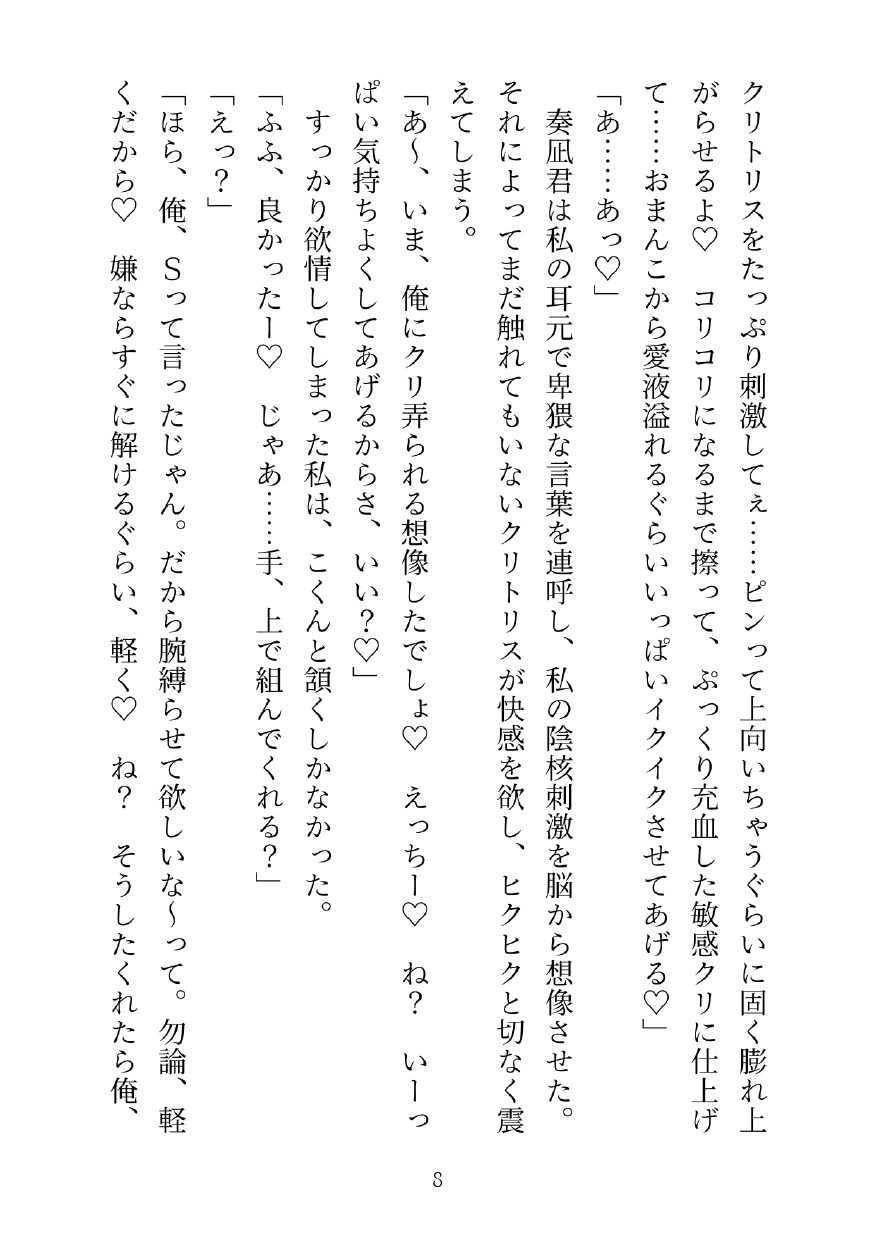 クリトリスをたっぷり刺激してぇ……ピンって上向いちゃうぐらいに固く膨れ上
がらせるよ♡　コリコリになるまで擦って、ぷっくり充血した敏感クリに仕上げ
て……おまんこから愛液溢れるぐらいいっぱいイクイクさせてあげる♡」
「あ……あっ♡」
　奏凪君は私の耳元で卑猥な言葉を連呼し、私の陰核刺激を脳から想像させた。
それによってまだ触れてもいないクリトリスが快感を欲し、ヒクヒクと切なく震
えてしまう。
「あ～、いま、俺にクリ弄られる想像したでしょ♡　えっちー♡　ね？　いーっ
ぱい気持ちよくしてあげるからさ、いい？♡」
　すっかり欲情してしまった私は、こくんと頷くしかなかった。
「ふふ、良かったー♡　じゃあ……手、上で組んでくれる？」
「えっ？」
「ほら、俺、Ｓって言ったじゃん。だから腕縛らせて欲しいな～って。勿論、軽
くだから♡　嫌ならすぐに解けるぐらい、軽く♡　ね？　そうしたくれたら俺、
8